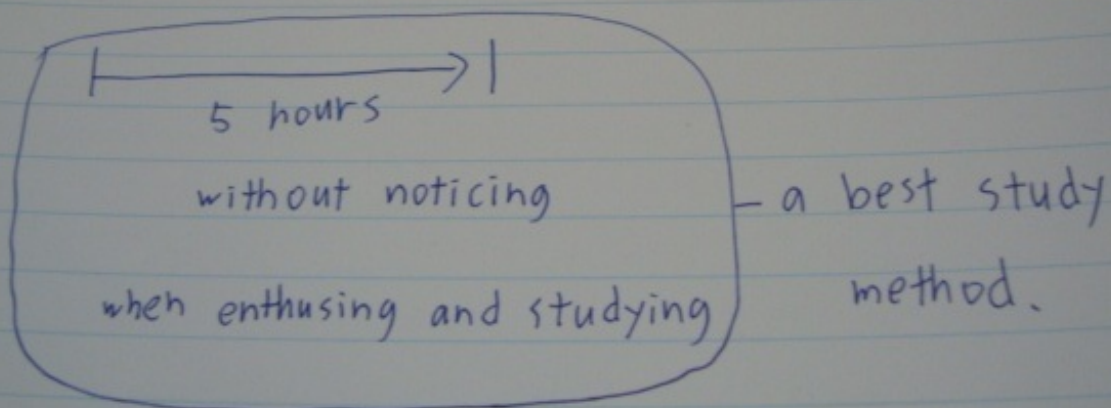 5 hours
without noticing
when enthusing and studying
a best study
method.